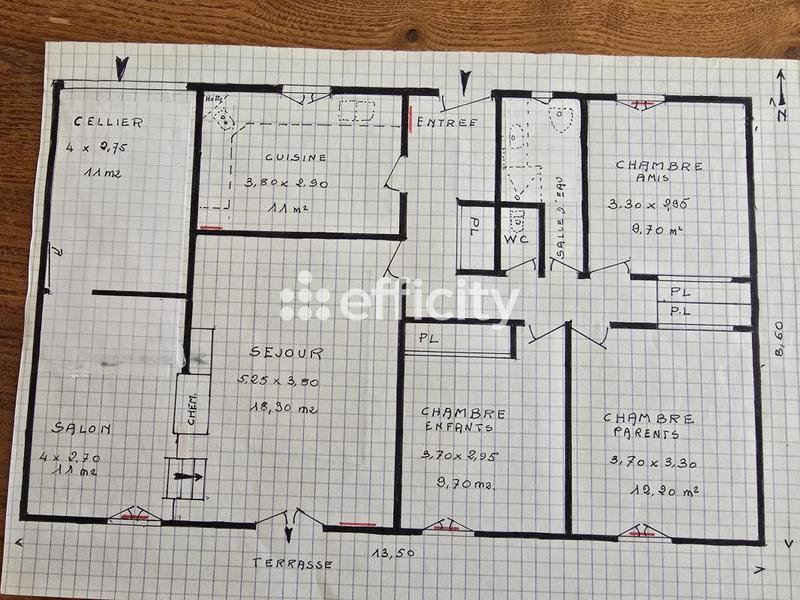 CELLIER
4 x 2,75
11 m2
Hotte
CUISINE
3,80 x 2,90
11 m²
ENTREE
PL
WC
SALLE D'EAU
CHAMBRE
AMIS
3,30 x 2,95
9,70 m²
N
PL
P.L
8,60
efficity
SEJOUR
5,25 x 3,80
18,90 m2
CHEM.
SALON
4 x 2,70
11 m2
PL
CHAMBRE
ENFANTS
3,70 x 2,95
9,70 m2.
CHAMBRE
PARENTS
3,70 x 3,30
12,20 m²
TERRASSE
13,50